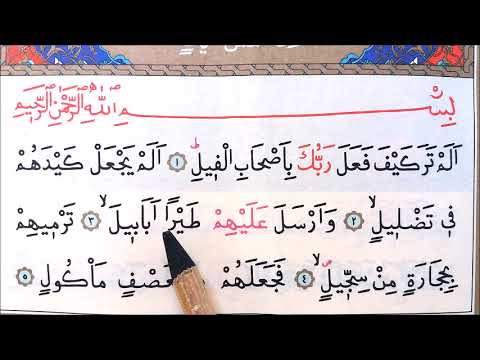 بِسْمِ اللّٰهِ الرَّحْمٰنِ الرَّحِيمِ
اَلَمْ تَرَ كَيْفَ فَعَلَ رَبُّكَ بِاَصْحَابِ الْفِيلِۜ ﴿١﴾ اَلَمْ يَجْعَلْ كَيْدَهُمْ
فِي تَضْلِيلٍۙ ﴿٢﴾ وَاَرْسَلَ عَلَيْهِمْ طَيْرًا اَبَابِيلَۙ ﴿٣﴾ تَرْمِيهِمْ
بِحِجَارَةٍ مِنْ سِجِّيلٍۙ ﴿٤﴾ فَجَعَلَهُمْ عَصْفٍ مَأْكُولٍ ﴿٥﴾